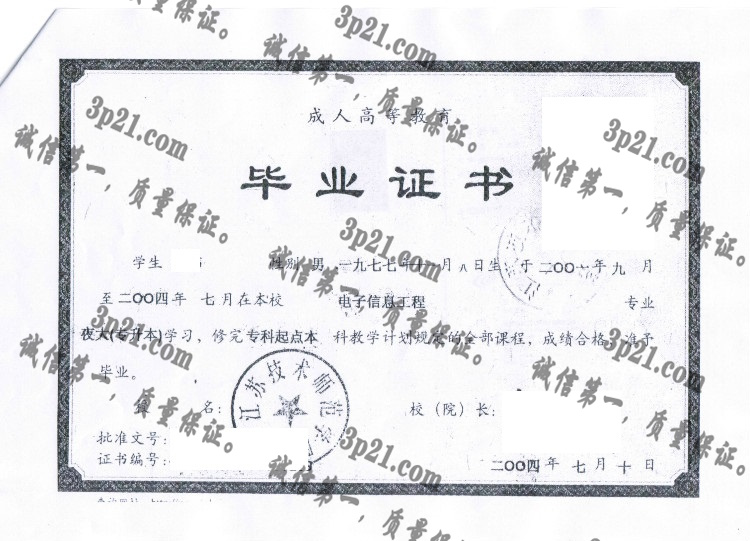 成人高等教育
毕业证书
学生 性别 男 一九七七年十一月八日生，于二〇〇一年九月
至二〇〇四年 七月在本校 电子信息工程 专业
夜大(专升本)学习，修完专科起点本 科教学计划规定的全部课程，成绩合格，准予
毕业。
江苏技术师范学
名：
校（院）长：
批准文号：
证书编号：
二〇〇四年 七月十日
3p21.com
诚信第一，质量保证。
3p21.com
诚信第一，质量保证。
3p21.com
诚信第一，质量保证。
3p21.com
诚信第一，质量保证。
3p21.com
诚信第一，质量保证。
3p21.com
诚信第一，质量保证。
3p21.com
诚信第一，质量保证。
质量保证。